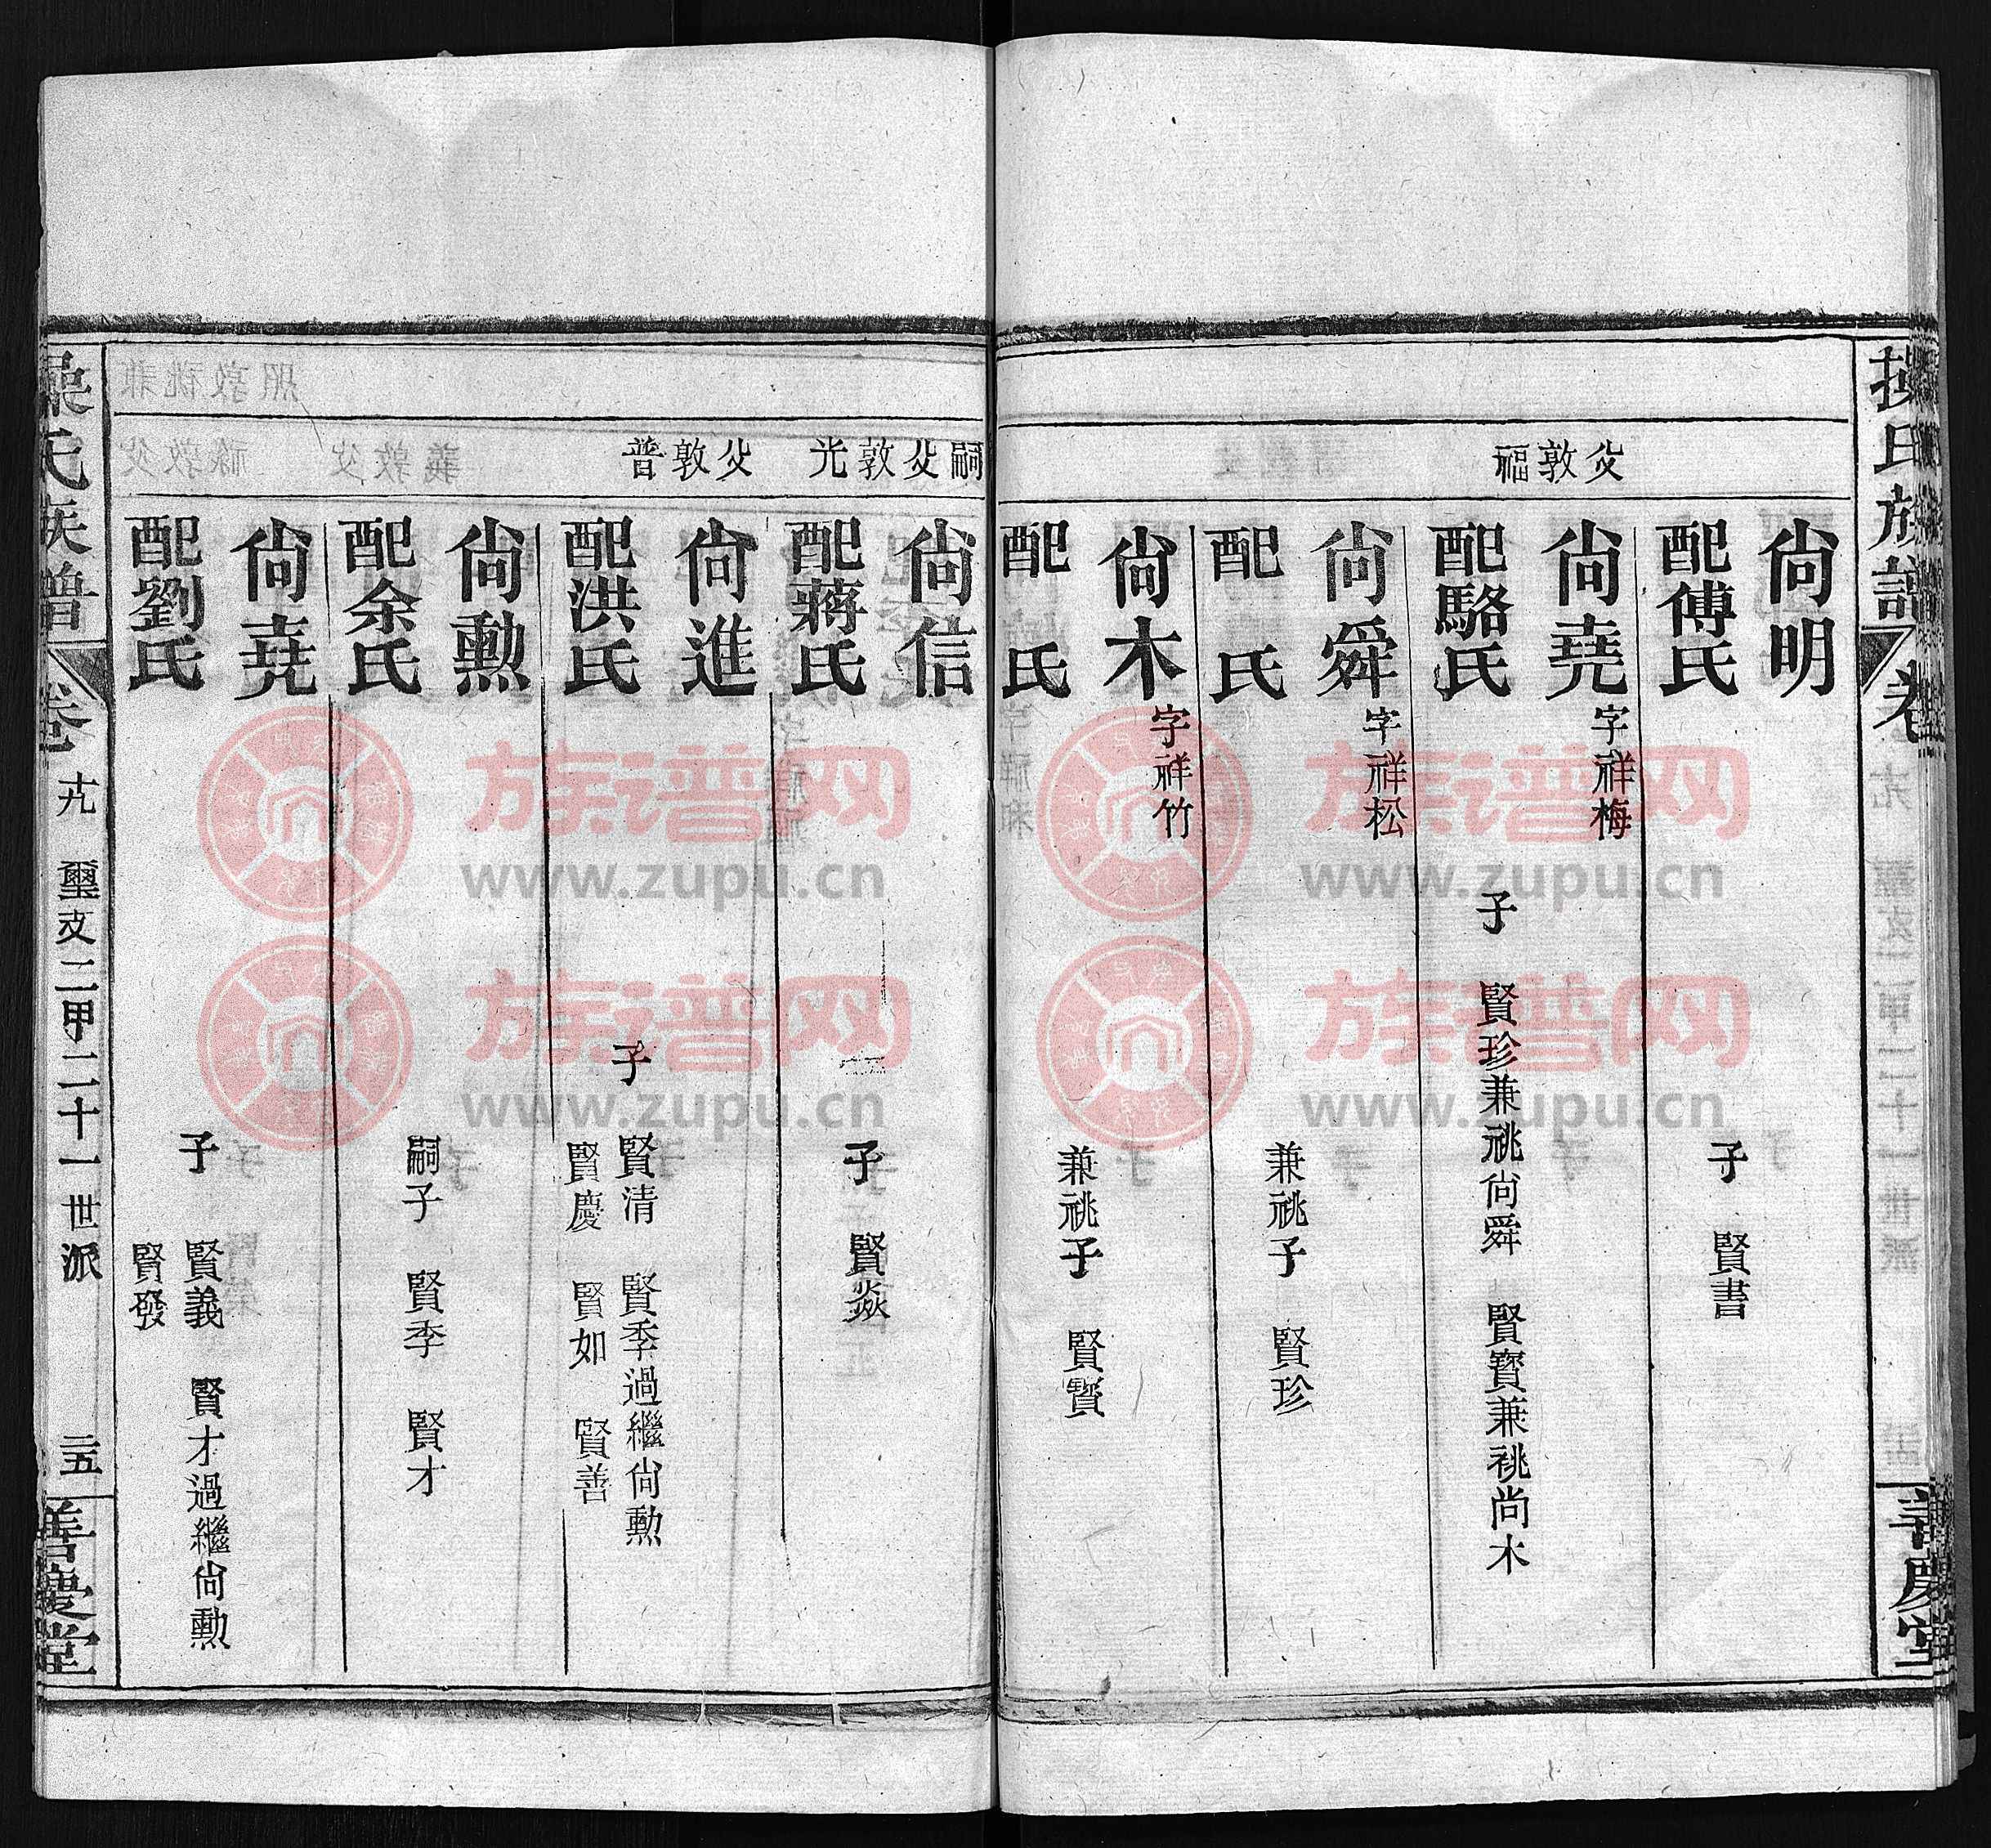 操氏族譜
卷
善慶堂
父敦福
尙明
配傅氏
子 賢書
尙堯
字祥梅
配駱氏
子 賢珍兼祧尙舜 賢寶兼祧尚木
尙舜
字祥松
配 氏
兼祧子 賢珍
尙木
字祥竹
配 氏
兼祧子 賢寶
嗣父敦光
尙信
配蔣氏
子 賢焱
父敦普
尙進
配洪氏
子
賢清 賢季過繼尙勳
賢慶 賢如 賢善
尙勳
配余氏
嗣子 賢季 賢才
尙堯
配劉氏
子
賢義 賢才過繼尙勳
賢發
操氏族譜
卷 尢 璽支二甲二十一世派 二五
善慶堂
族谱网
www.zupu.cn
族谱网
www.zupu.cn
族谱网
www.zupu.cn
族谱网
www.zupu.cn